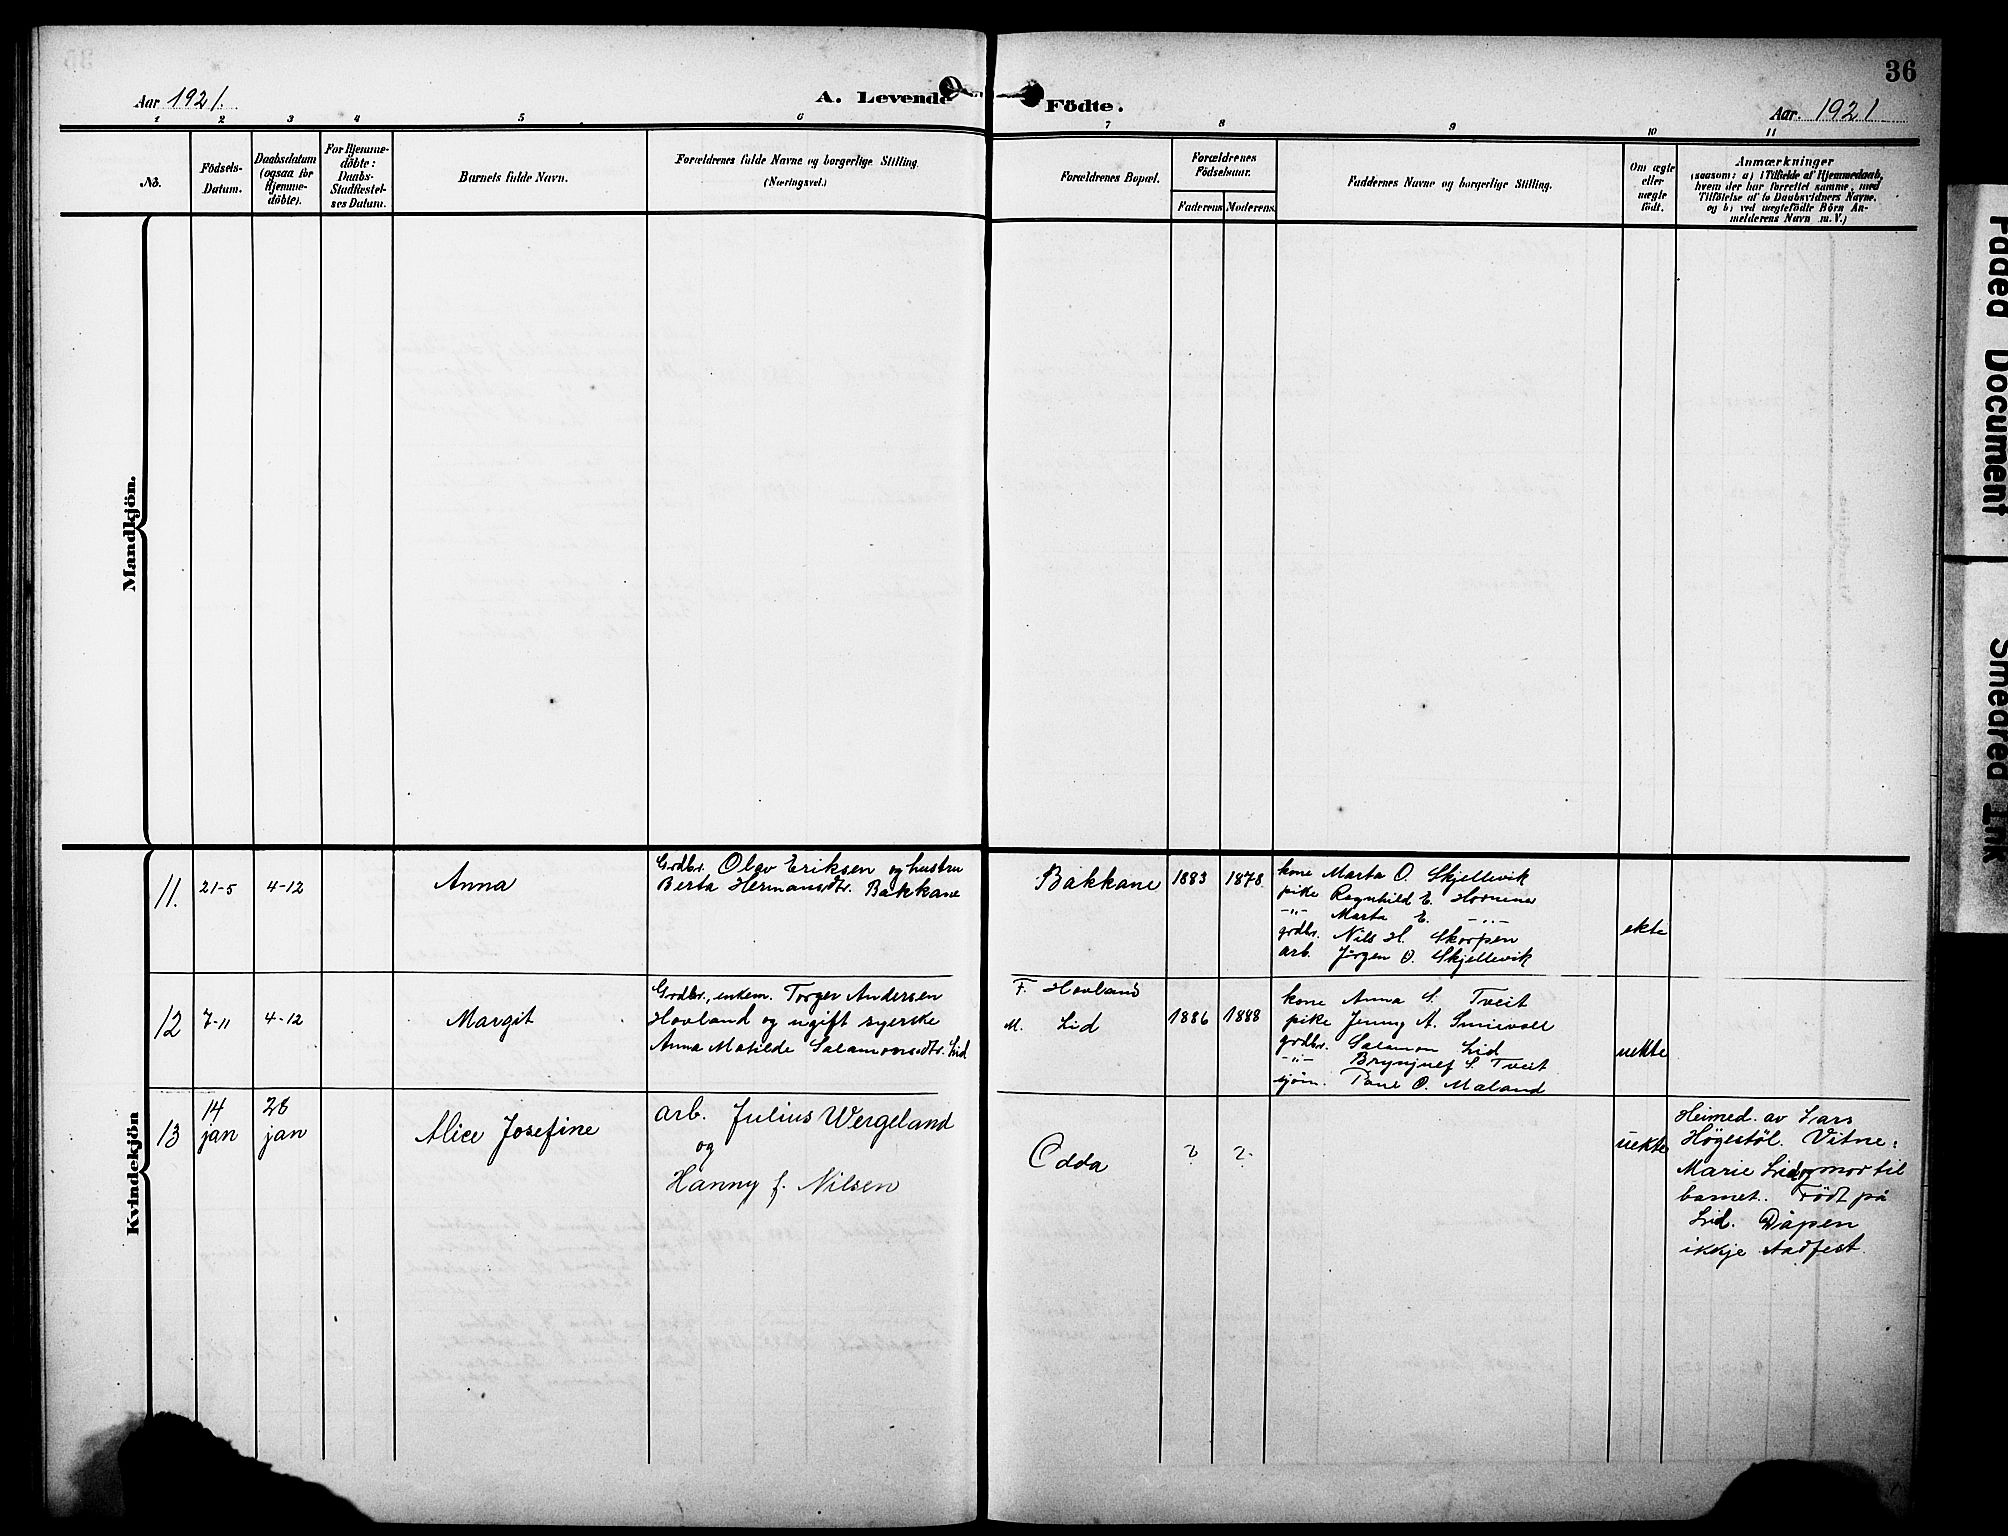 36
Aar 1921.
A. Levende Födte.
Aar. 1921
1 2 3 4 5 6 7 8 9 10 11
No.
Födsels-
Datum.
Daabsdatum
(ogsaa for
Hjemme-
döbte).
For Hjemme-
döbte:
Daabs-
Stadfæstel-
ses Datum.
Barnets fulde Navn.
Forældrenes fulde Navne og borgerlige Stilling.
(Næringsvei.)
Forældrenes Bopæl.
Forældrenes
Födselsaar.
Faderens Moderens.
Faddernes Navne og borgerlige Stilling.
Om ægte
eller
uægte
födt.
Anmærkninger
(saasom: a) i Tilfælde af Hjemmedaab,
hvem der har forrettet samme, med
Tilföielse af to Daabsvidners Navne.
og b) ved uægtefödte Börn An-
melderens Navn m. V.)
Mandkjön.
Kvindekjön
11. 21-5 4-12 Anna
Grdbr. Olav Eriksen og hustru
Berta Hermansdtr. Bakkane
Bakkane 1883 1878
kone Marta O. Skjellevik
pike Ragnhild E.
-"- Marta E. -"-
grdbr. Nils H. Skorpen
arb. Jörgen O. Skjellevik
ekte
12 7-11 4-12 Margit
Grdbr., enkem. Torger Andersen
Hovland og ugift syerske
Anna Matilde Salamonsdtr. Lid
F. Hovland
M. Lid
1886 1888
kone Anna S. Tveit
pike Jenny A.
grdbr. Salamon Lid
-"- Brynjulf S. Tveit
sjöm. O. Mæland
uekte
13 14 jan 26 jan Alice Josefine
arb. Julius Wergeland
og
Hanny f. Nilsen
Odda ? ?
uekte
Heimed. av Lars
Högestöl. Vitne:
Marie Lid og mor til
barnet. Födt på
Lid. Dåpen
ikkje stadfest.
Faded Document
Smeared Ink